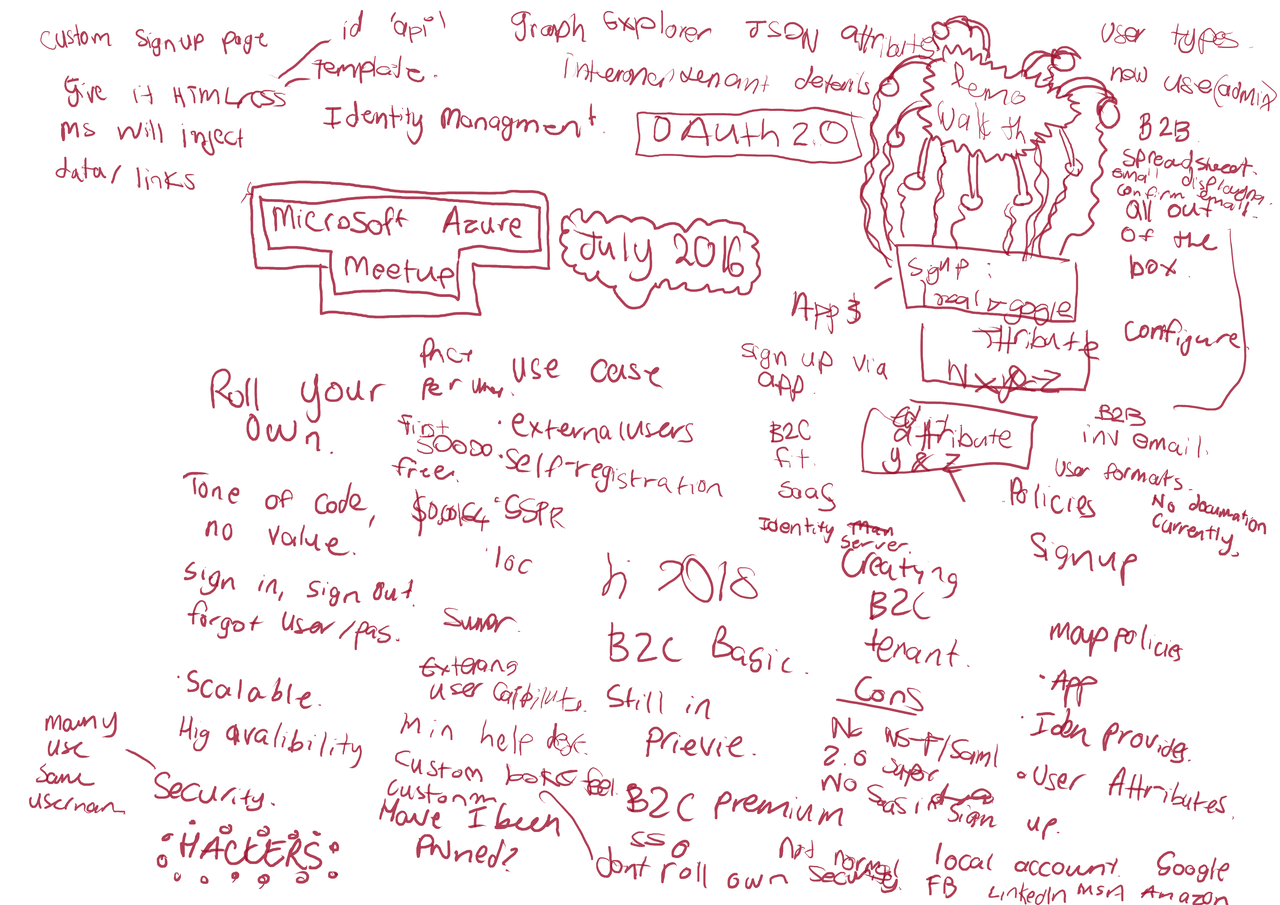 Custom Signup page
Give it HTML/CSS
MS will inject
data/links
id 'api'
template.
Identity Managment.
Graph Explorer JSON attribute
tenant details
OAuth 2.0
Demo
Walk th
User types.
new use(admin)
B2B
Spreadsheet.
email displaying
confirm email.
all out
of the
box.
Configure
Microsoft Azure
Meetup
July 2016
App $
sign up via
app.
B2C
fit.
SaaS
Identity Man
server.
Signup :
google
Attribute
attribute
y & z
B2B
inv email.
User formats.
Policies
No documation
Currently,
Signup
Roll your
own.
Tone of code,
no value.
sign in, sign out.
forgot user/pas.
·Scalable.
Hig avalibility
many
use
same
usernam
Security.
HACKERS
Per
first
50000
free.
use case
·external users
·self-registration
·SSPR
·loc
user
Min help desk.
Custom
Custom
Have I been
Pwned?
2018
B2C Basic.
Still in
Prievie.
B2C premium
SSO
dont roll own security.
Creatyng
B2C
tenant.
Cons
No WS-F/Saml
2.0
No Sas in
Sign up.
Not normal
map policies
·App
·Iden provider.
·User Attributes.
local account. Google
FB LinkedIn MSA Amazon